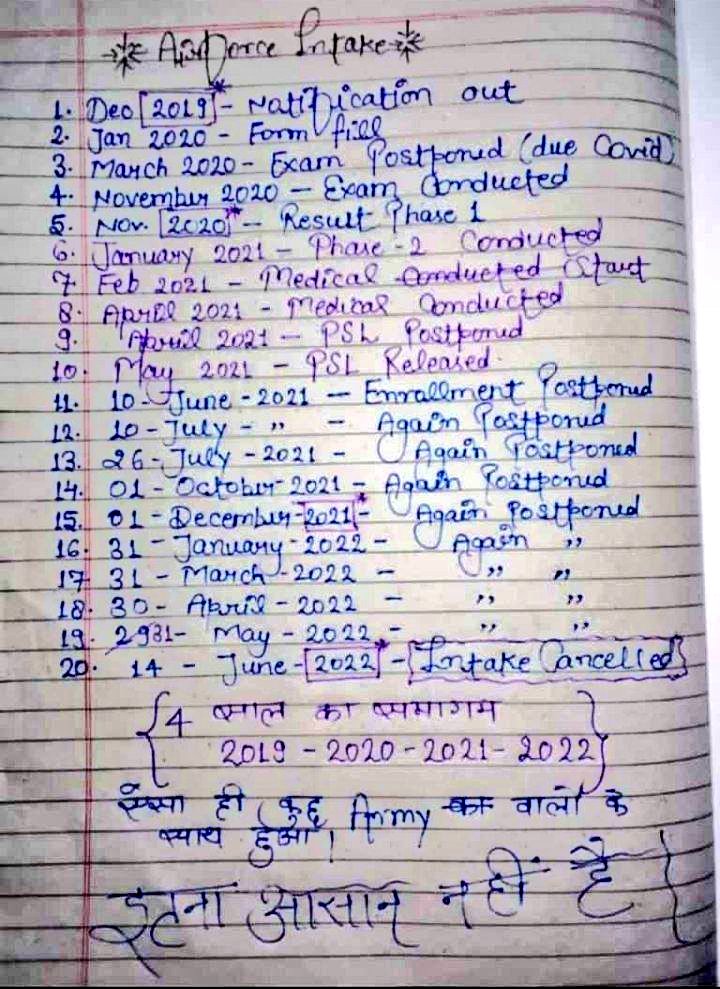 Airforce Intake
1. Dec [2019]* - Notification out
2. Jan 2020 - Form fill
3. March 2020 - Exam Postponed (due Covid)
4. November 2020 - Exam Conducted
5. Nov. [2020]* - Result Phase 1
6. January 2021 - Phase - 2 Conducted
7. Feb 2021 - Medical Conducted Start
8. April 2021 - Medical Conducted
9. April 2021 - PSL Postponed
10. May 2021 - PSL Released.
11. 10 - June - 2021 - Enrallment Postponed
12. 10 - July - " - Again Postponed
13. 26 - July - 2021 - Again Postponed
14. 01 - October - 2021 - Again Postponed
15. 01 - December - [2021]* - Again Postponed
16. 31 - January - 2022 - Again ,,
17 31 - March - 2022 - ,, ,,
18. 30 - April - 2022 - ,, ,,
19. 2931 - May - 2022 - ,, ,,
20. 14 - June - [2022]* - [Intake Cancelled]
{4 साल का समागम
2019 - 2020 - 2021 - 2022}
ऐसा ही कुछ Army का वालों के
साथ हुआ।
इतना आसान नहीं है